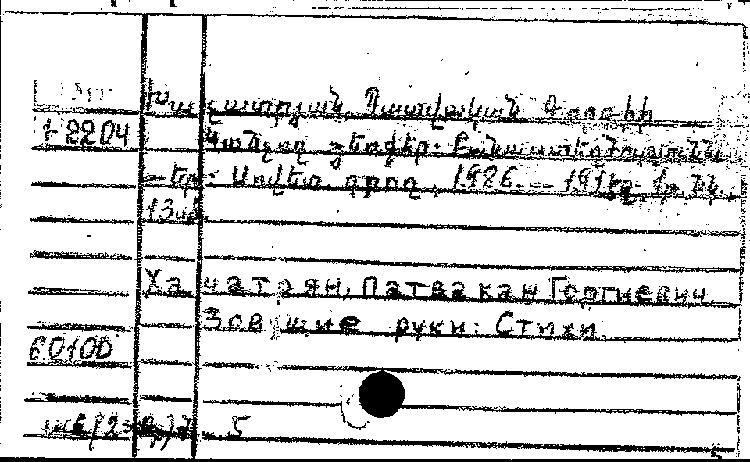 Խաչատրյան, Պատվական Գ
12204
Կանչող ձեռքեր: Բանաստեղծություններ
— Եր.: Սովետ. գրող, 1986. — 191 էջ.
13սմ
Хачатрян, Патвакан Георгиевич
Зовущие руки: Стихи
60100
5